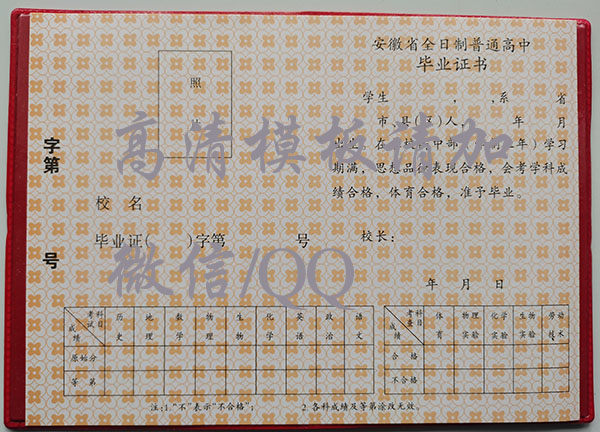 安徽省全日制普通高中
毕业证书
照
片
学生 , ,系 省
市、县(区)人, 年 月
期满，思想品德表现合格，会考学科成
绩合格，体育合格，准予毕业。
字第
号
校 名
毕业证( )字第 号
校长：
年 月 日
高清模板请加
微信/QQ
考试科目 成绩 历史 地理 数学 物理 生物 化学 英语 政治 语文
原始分
等 第
考查科目 成绩 体育 物理实验 化学实验 生物实验 劳动技术
合 格
不合格
注:1.“不”表示“不合格”; 2.各科成绩及等第涂改无效。